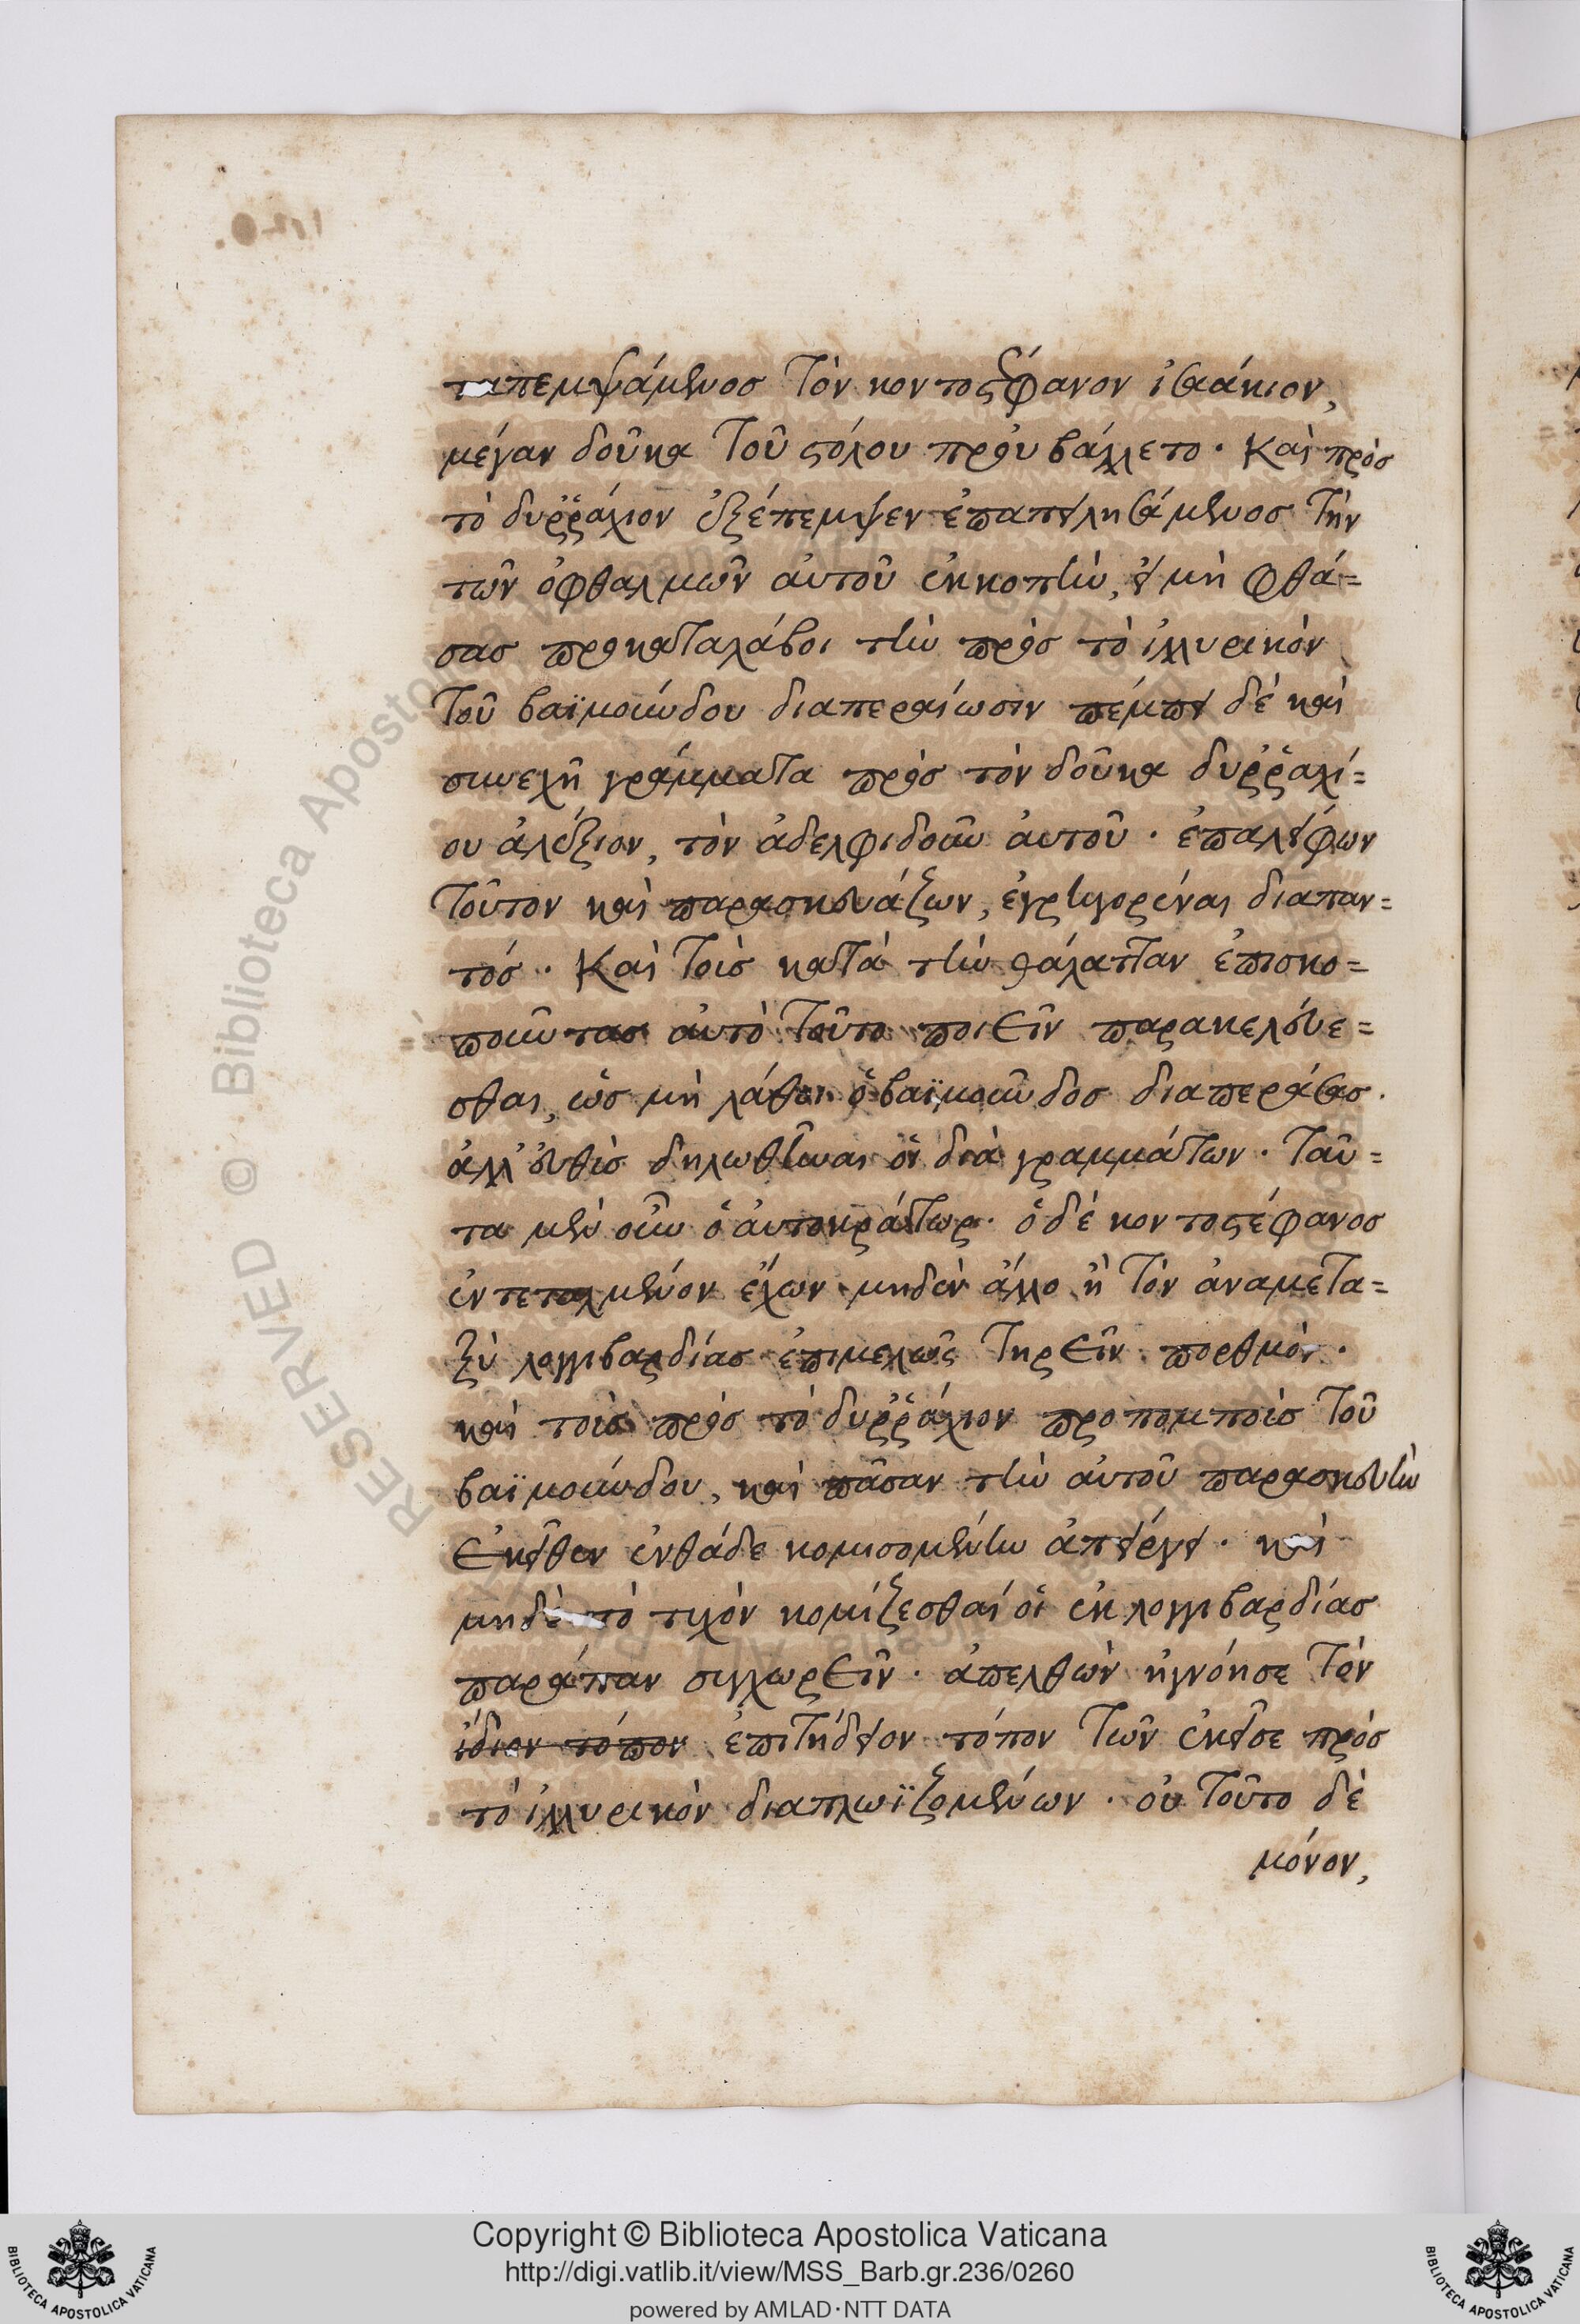 ταπεμψάμενος τὸν κοντοστέφανον ἰσαάκιον,
μέγαν δοῦκα τοῦ στόλου προὐβάλλετο. Καὶ πρὸς
τὸ δυῤῥάχιον ἐξέπεμψεν ἐπαπειλησάμενος τὴν
τῶν ὀφθαλμῶν αὐτοῦ ἐκκοπὴν, εἰ μὴ φθά=
σας προκαταλάβοι τὴν πρὸς τὸ ἰλλυρικὸν
τοῦ βαϊμούνδου διαπεραίωσιν πέμπει δὲ καὶ
συνεχῆ γράμματα πρὸς τὸν δοῦκα δυῤῥαχί=
ου ἀλέξιον, τὸν ἀδελφιδοῦν αὐτοῦ. ἐπαλείφων
τοῦτον καὶ παρασκευάζων, ἐγρηγορέναι διαπαν=
τός. Καὶ τοὶς κατὰ τὴν θάλατταν ἐπισκο=
ποῦντας αὐτὸ τοῦτο ποιεῖν παρακελεύε=
σθαι, ὡς μὴ λάθοι ὁ βαϊμοῦνδος διαπεράσας.
ἀλλ' εὐθὺς δηλωθῆναι οἱ διὰ γραμμάτων. Ταῦ=
τα μὲν οὖν ὁ αὐτοκράτωρ. ὁ δὲ κοντοστέφανος
ἐντεταλμένον ἔχων μηδὲν ἄλλο ἢ τὸν ἀναμετα=
ξὺ λογγιβαρδίας ἐπιμελῶς τηρεῖν πορθμὸν.
καὶ τοὶς πρὸς τὸ δυῤῥάχιον προπομποὶς τοῦ
βαϊμούνδου, καὶ πᾶσαν τὴν αὐτοῦ παρασκευὴν
ἐκεῖθεν ἐνθάδε κομιζομένην ἀπείργει. καὶ
μηδὲ τὸ τυχὸν κομίζεσθαί οἱ ἐκ λογγιβαρδίας
παράπαν συγχωρεῖν. ἀπελθὼν ἠγνόησε τὸν
ἴδιον τόπον ἐπιτήδειον τόπον τῶν ἐκεῖσε πρὸς
τὸ ἰλλυρικὸν διαπλωϊζομένων. οὐ τοῦτο δὲ
μόνον,
RESERVED © Biblioteca Apostolica Vaticana
Copyright © Biblioteca Apostolica Vaticana
http://digi.vatlib.it/view/MSS_Barb.gr.236/0260
powered by AMLAD·NTT DATA
BIBLIOTECA APOSTOLICA VATICANA
BIBLIOTECA APOSTOLICA VATICANA